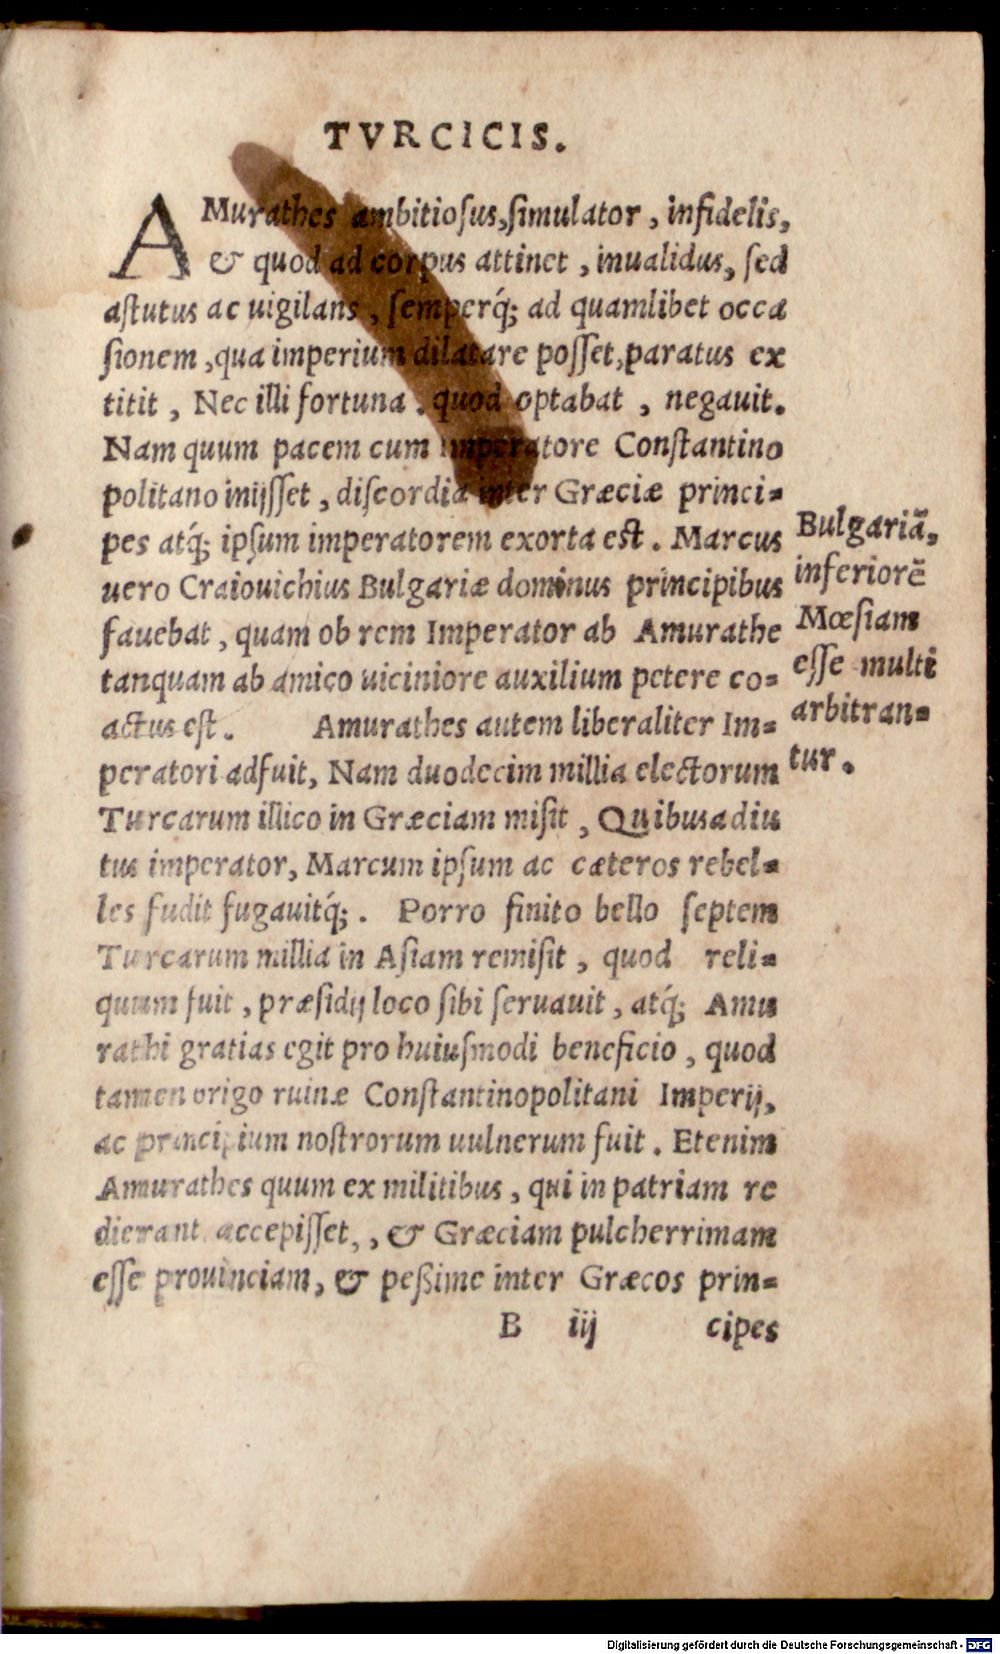 TVRCICIS.
AMurathes ambitioſus, ſimulator, infidelis,
& quod ad corpus attinet, inualidus, ſed
aſtutus ac uigilans, ſemperq́; ad quamlibet occa
ſionem, qua imperium dilatare poſſet, paratus ex
titit, Nec illi fortuna, quod optabat, negauit.
Nam quum pacem cum imperatore Conſtantino
politano inijſſet, diſcordia inter Græciæ princi-
pes atq́; ipſum imperatorem exorta eſt. Marcus
uero Craiouichius Bulgariæ dominus principibus
fauebat, quam ob rem Imperator ab Amurathe
tanquam ab amico uiciniore auxilium petere co-
actus eſt. Amurathes autem liberaliter Im-
peratori adfuit, Nam duodecim millia electorum
Turcarum illico in Græciam miſit, Quibus adiu
tus imperator, Marcum ipſum ac cæteros rebel-
les fudit fugauitq́;. Porro finito bello ſeptem
Turcarum millia in Aſiam remiſit, quod reli-
quum fuit, præſidij loco ſibi ſeruauit, atq́; Amu
rathi gratias egit pro huiuſmodi beneficio, quod
tamen origo ruinæ Conſtantinopolitani Imperij,
ac principium noſtrorum uulnerum fuit. Etenim
Amurathes quum ex militibus, qui in patriam re
dierant accepiſſet, & Græciam pulcherrimam
eſſe prouinciam, & peßime inter Græcos prin-
B iij cipes
Bulgariã,
inferiorẽ
Mœſiam
eſſe multi
arbitran-
tur.
Digitalisierung gefördert durch die Deutsche Forschungsgemeinschaft - DFG